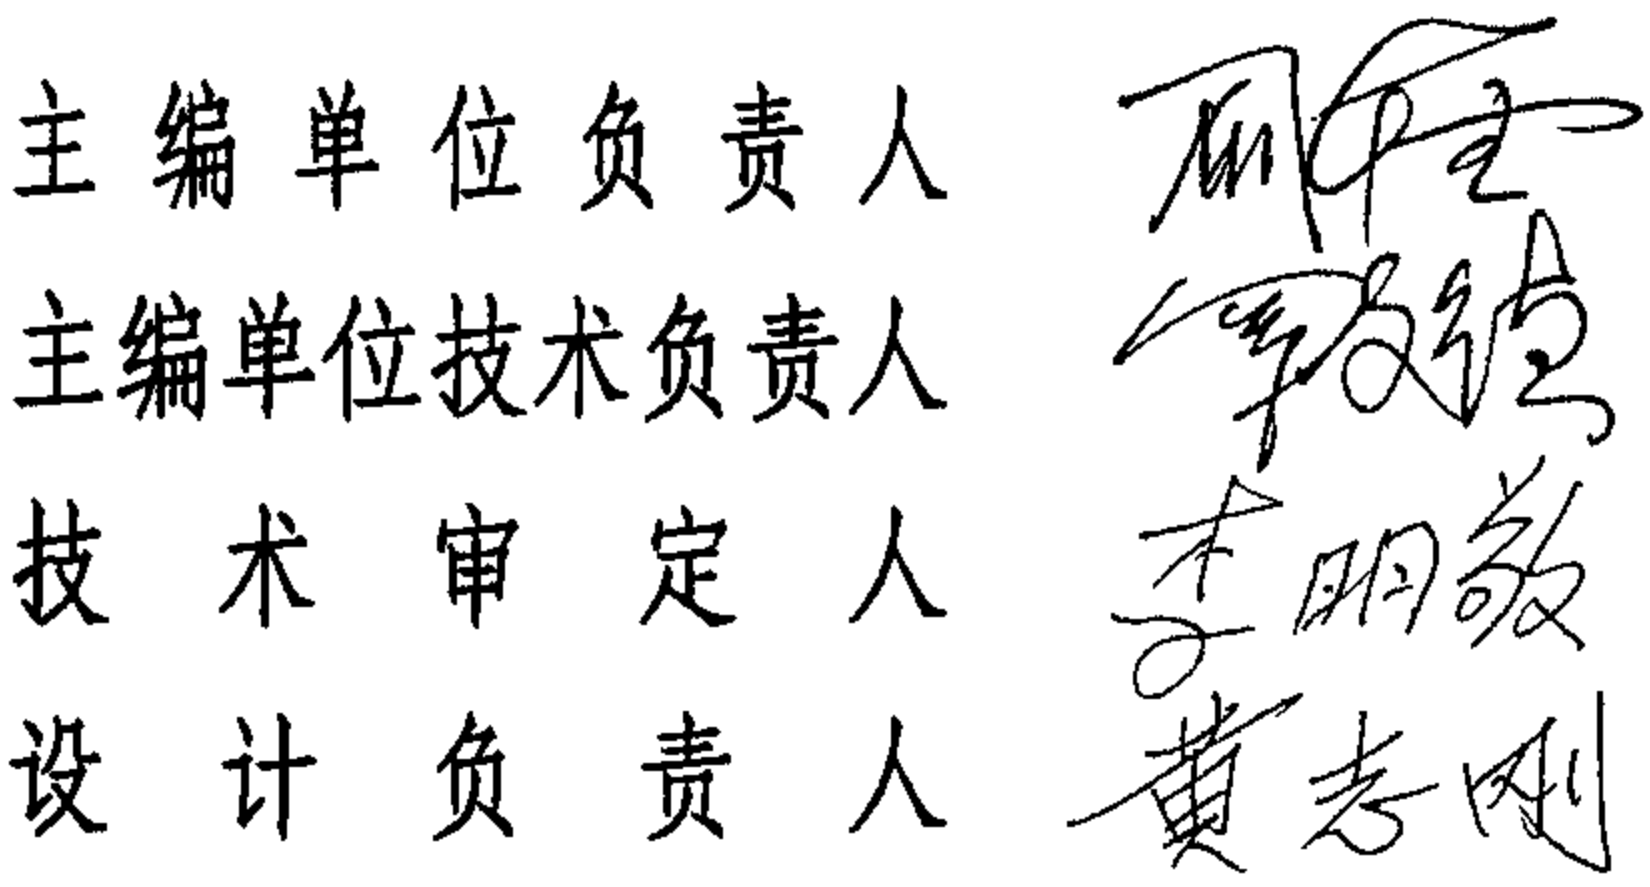 主编单位负责人
主编单位技术负责人
技术审定人 李明敬
设计负责人 黄志刚